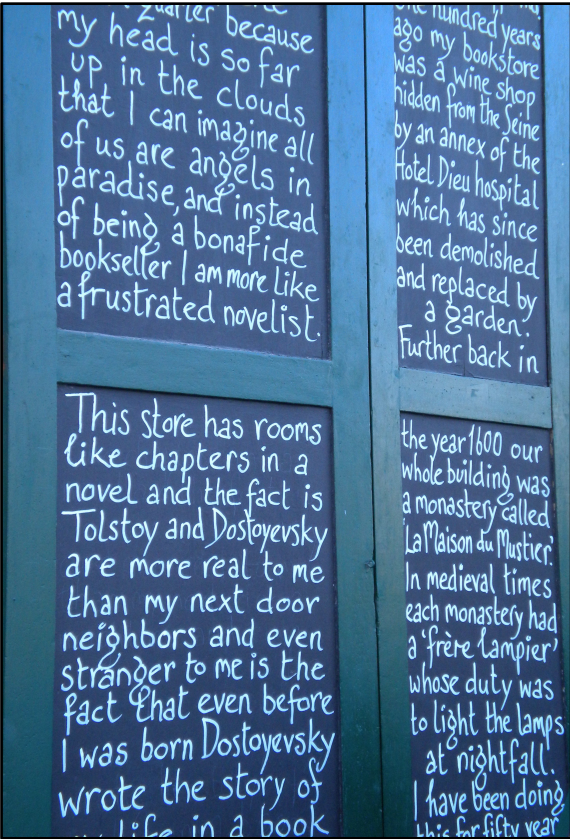 quarter because
my head is so far
up in the clouds
that I can imagine all
of us are angels in
paradise, and instead
of being a bonafide
bookseller I am more like
a frustrated novelist.
This store has rooms
like chapters in a
novel and the fact is
Tolstoy and Dostoyevsky
are more real to me
than my next door
neighbors and even
stranger to me is the
fact that even before
I was born Dostoyevsky
wrote the story of
my life in a book
one hundred years
ago my bookstore
was a wine shop
hidden from the Seine
by an annex of the
Hotel Dieu hospital
which has since
been demolished
and replaced by
a garden.
Further back in
the year 1600 our
whole building was
a monastery called
'La Maison du Mustier.'
In medieval times
each monastery had
a 'frère lampier'
whose duty was
to light the lamps
at nightfall.
I have been doing
this for fifty year